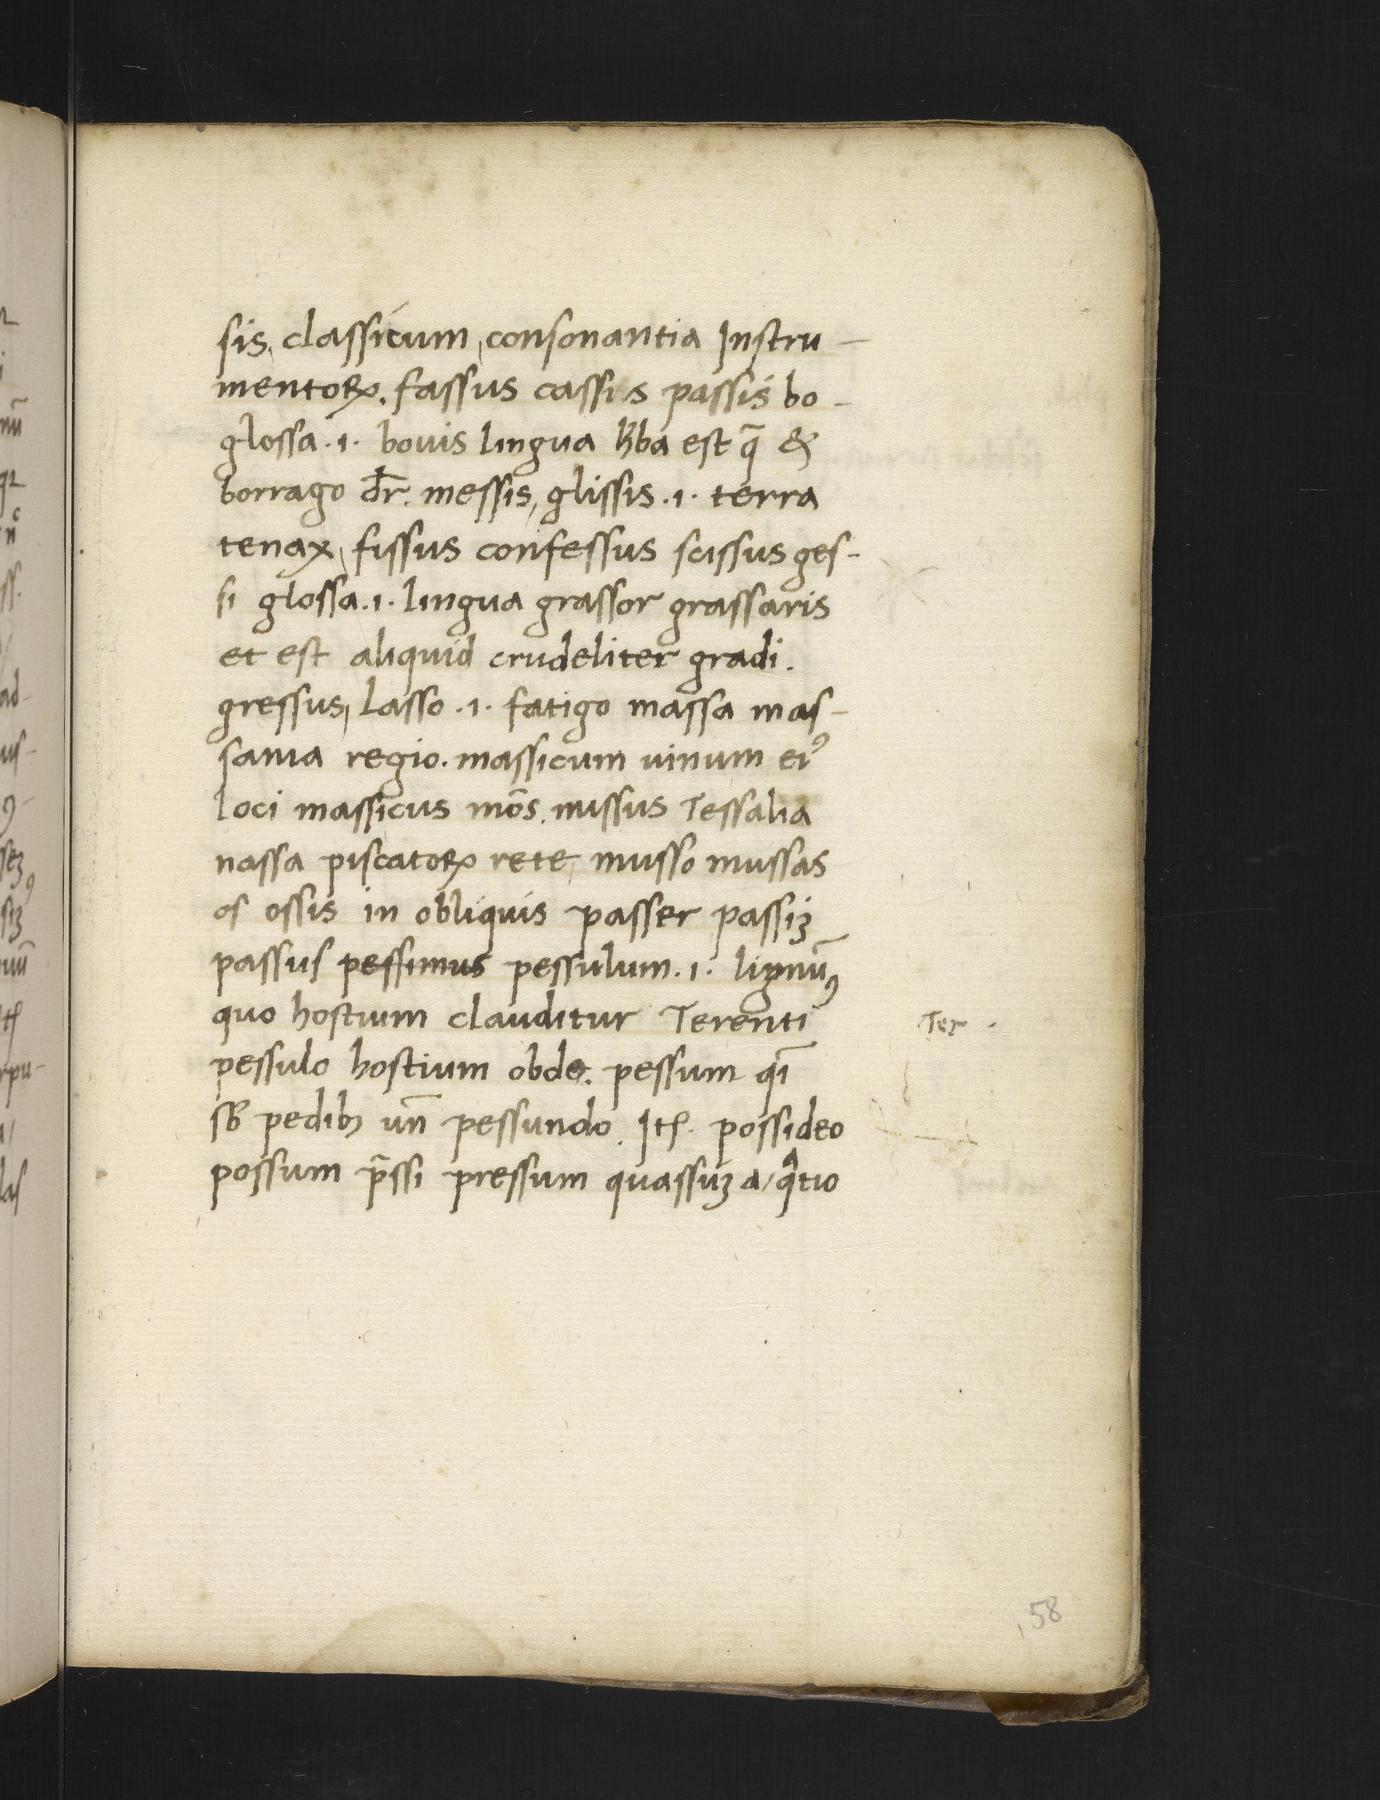 sis, classicum, consonantia Instru-
mentoꝝ. fassus cassus passis bo-
glossa .ı. bouis lingua h̄ba est q̄ &
borrago dr̄. messis, glissis .ı. terra
tenax, fissus confessus scissus ges-
si glossa .ı. lingua grassor grassaris
et est aliquid crudeliter gradi.
gressus, lasso .ı. fatigo massa mas-
sania regio. massicum uinum eiꝰ
loci massicus mōs. missus Tessalia
nassa piscatoꝝ rete, musso mussas
os ossis in obliquis passer passiꝫ
passus pessimus pessulum .ı. lignū,
quo hostium clauditur Terenti
Ter .
pessulo hostium obde. pessum qī
sƀ pedibꝫ un̄ pessundo. Itꝭ. possideo
possum p̄ssi pressum quassuꝫ a, qᵃtio
58